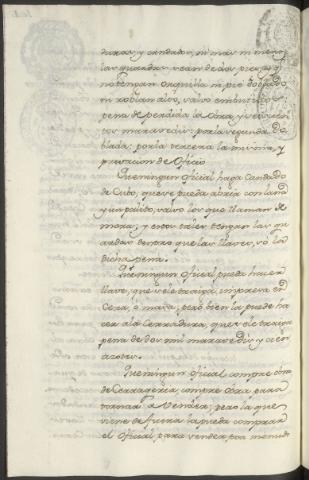 duras, y candados, ni mas, ni menos
las guardas sean de dos piezas, y
no tengan orquilla, ni pie doblado
ni
pena de perdida la obra, y seiscien
tos maravedis: por la segunda do
blada: por la tercera la misma, y
privacion de Oficio
Que ningun oficial haga Candado
de Cubo, que se pueda abrir con
y un palito, salvo los que llaman de
mora; y estos tales tengan las gu
ardas dentro que las llaves, so la
dicha pena.
Que ningun oficial pueda hacer
llave, que se le traiga, impresa en
Cera, ó masa; pero bien la puede ha
cer á la Cerradura, que se le traiga
pena de dos mil maravedis, y cien
azotes.
Que ningun oficial compre obra
de Cerrageria, compre obra para
tornar á Vender, pero la que
viene de fuera la pueda comprar
el oficial, para vender, por menudo